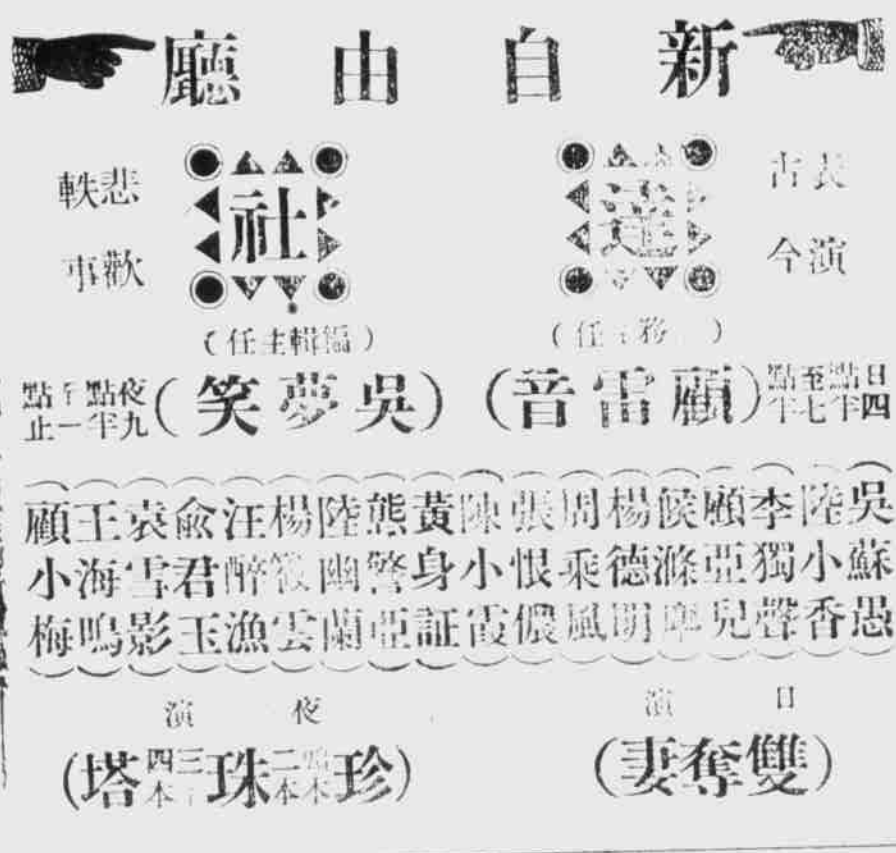 新自由廳
達社
表演
古今
悲歡
軼事
（務任）
（編輯主任）
日四點半至七點半
（顧雷音）
（吳夢笑）
夜九點半一點止
（吳蘇愚）（陸小香）（李獨聲）（顧亞兒）（候滌）（楊德明）（周乘風）（張恨儂）（陳小霞）（黃身証）（熊警亞）（陸幽蘭）（楊筱雲）（汪醉漁）（俞君玉）（袁雪影）（王海鳴）（顧小梅）
日演
（雙奪妻）
夜演
（珍珠二本三四本塔）